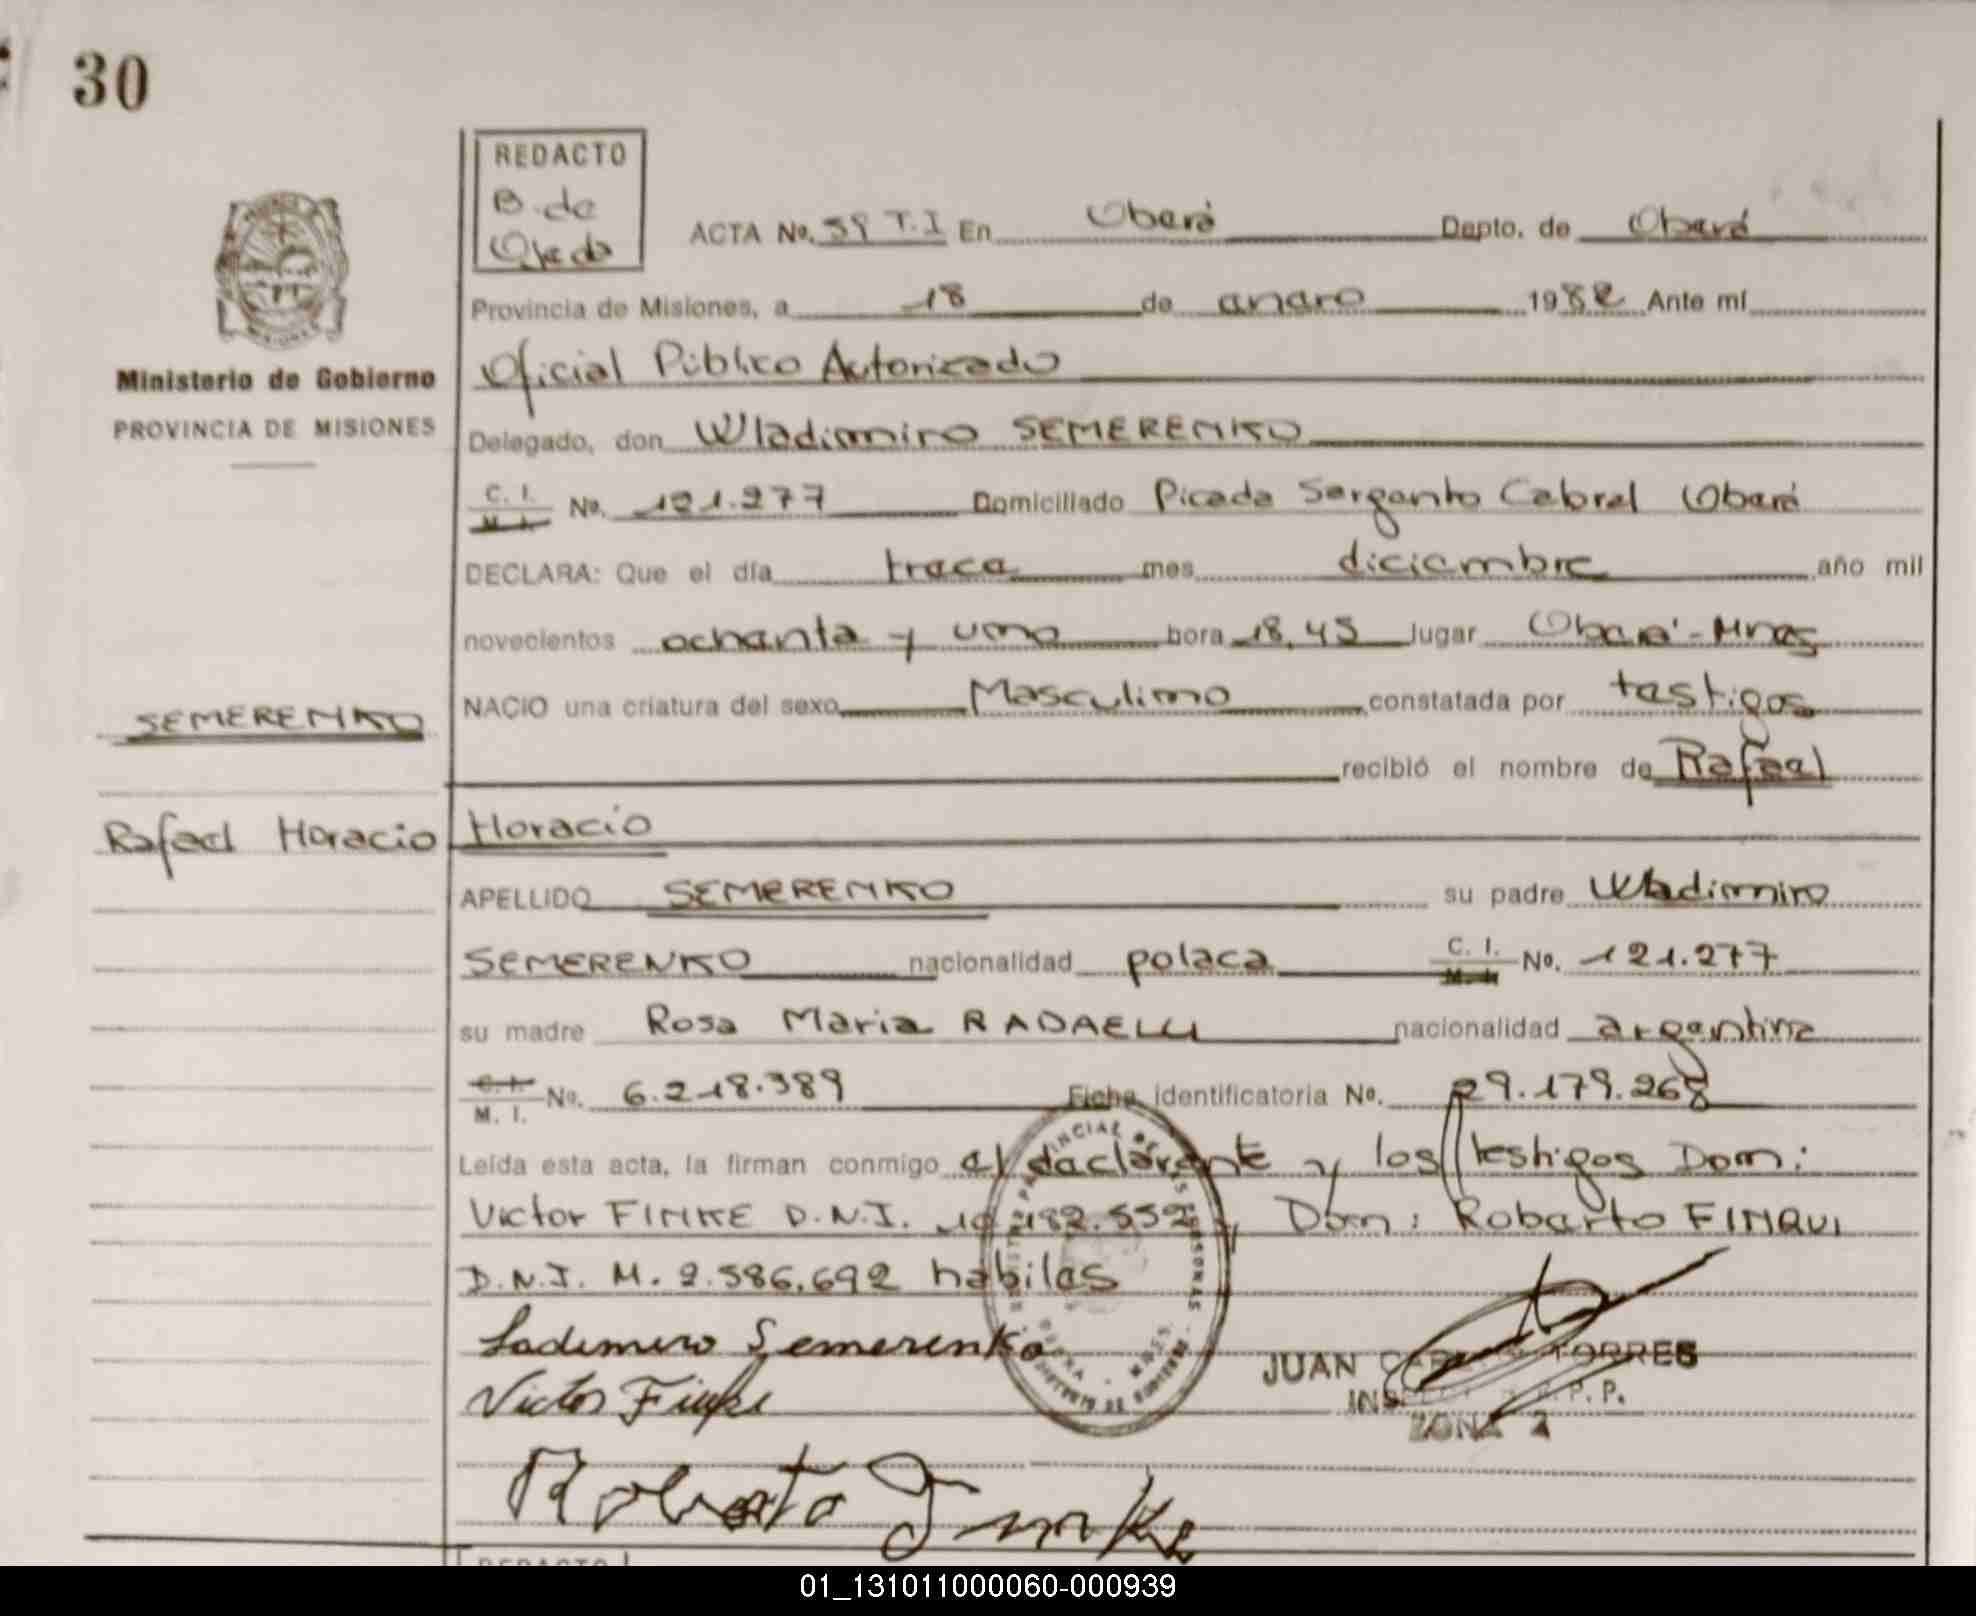 30
REDACTO
B. de
Ojeda
ACTA No. 59 T.I En Oberá Depto. de Oberá
Provincia de Misiones, a 18 de enero 1982 Ante mí
Oficial Público Autorizado
Ministerio de Gobierno
PROVINCIA DE MISIONES
Delegado, don Wladimiro SEMERENKO
C. I. M. I. No. 121.277 Domiciliado Picada Sargento Cabral Oberá
DECLARA: Que el día trece mes diciembre año mil
novecientos ochenta y uno hora 18,45 lugar Oberá-Mnes
SEMERENKO
NACIO una criatura del sexo Masculino constatada por testigos
recibió el nombre de Rafael
Rafael Horacio
Horacio
APELLIDO SEMERENKO su padre Wladimiro
SEMERENKO nacionalidad polaca C. I. M. I. No. 121.277
su madre Rosa Maria RADAELLI nacionalidad argentina
C. I. M. I. No. 6.218.389 Ficha identificatoria No. 29.179.268
Leída esta acta, la firman conmigo el declarante y los testigos Don:
Victor FINKE D.N.I. 10.182.552 y Don: Roberto FINQUI
D.N.I. M. 2.586.692 habiles
Ladimiro Semerenko
JUAN CARLOS TORRES
Victor Finke
R. P. P.
ZONA 2
Roberto Finke
REDACTO
01_131011000060-000939